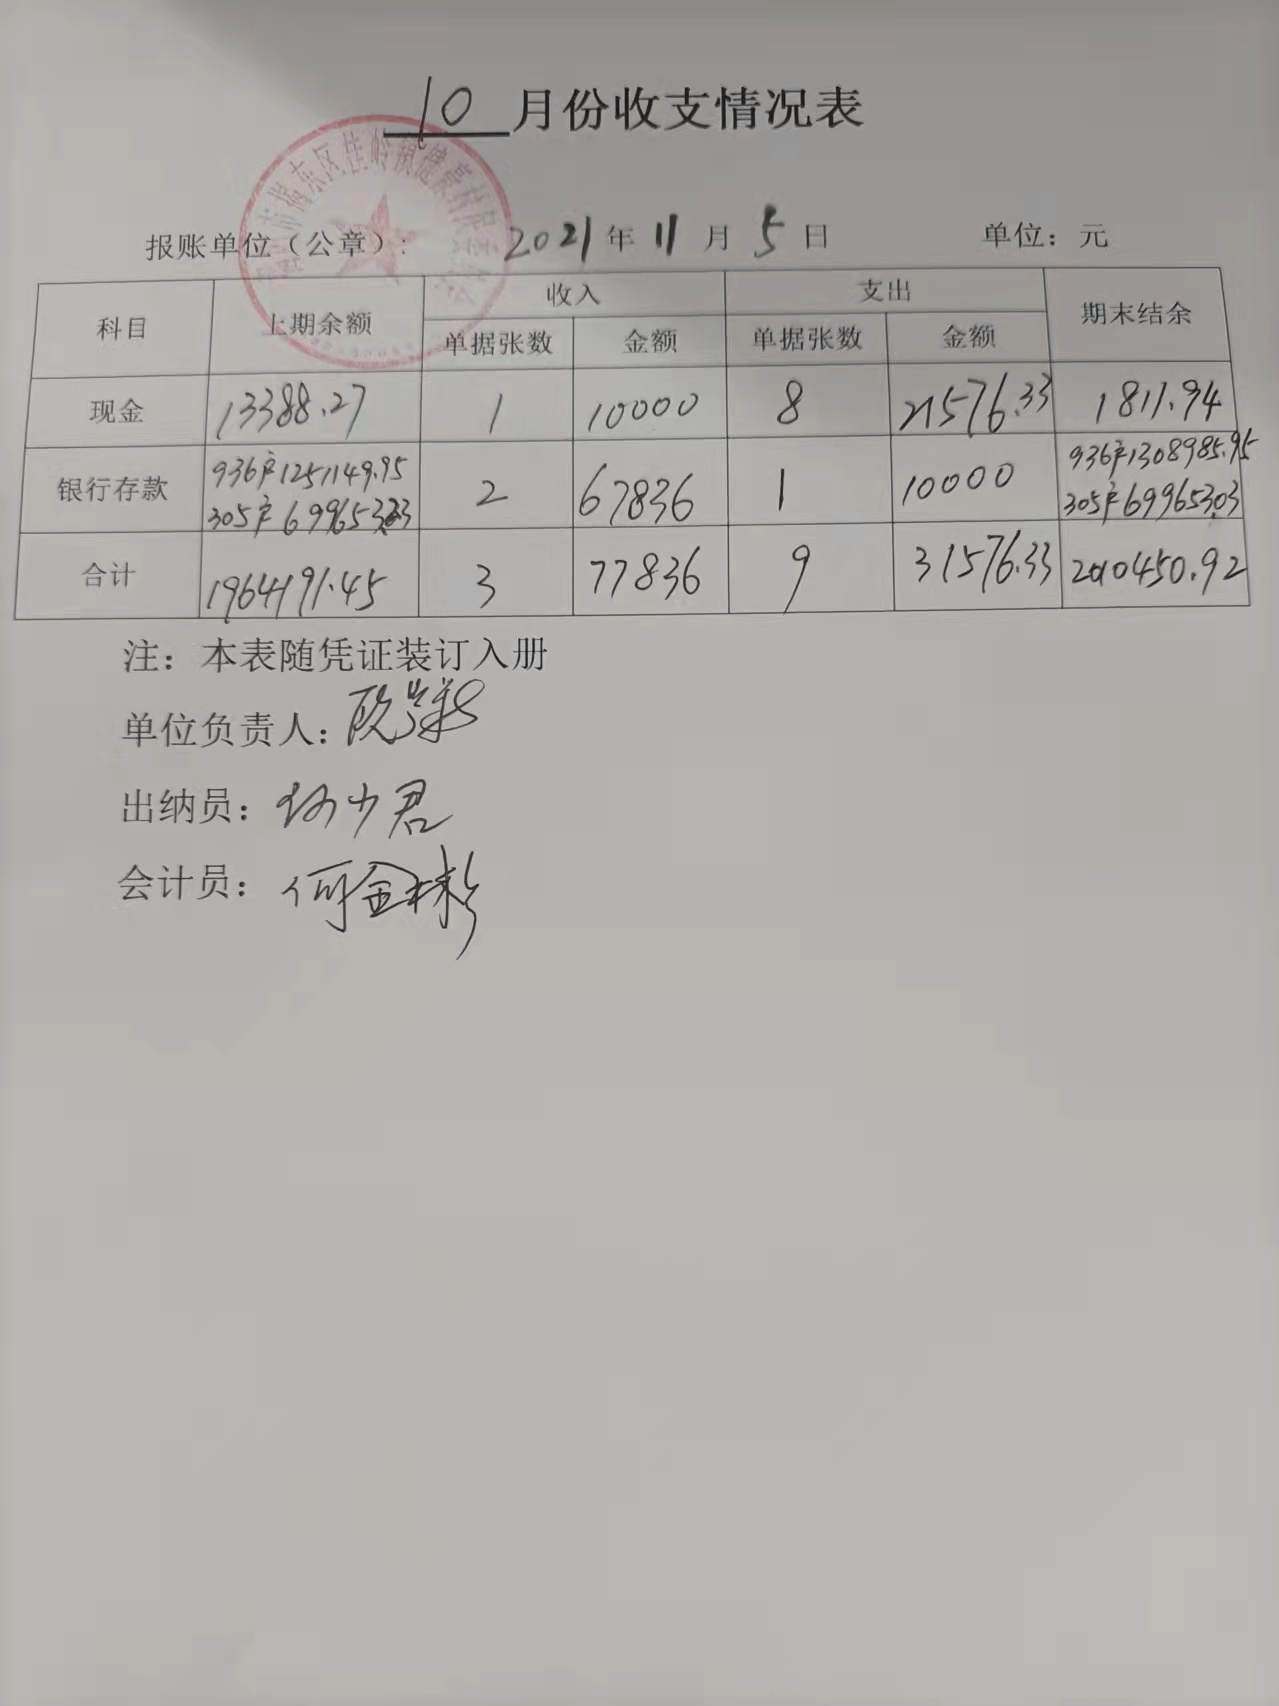 10月份收支情况表
报账单位（公章）： 2021年11月5日 单位：元
科目 上期余额 收入 支出 期末结余
单据张数 金额 单据张数 金额
现金 13388.27 1 10000 8 21576.33 1811.94
银行存款 936户1251149.95 2 67836 1 10000 936户1308985.95
305户699653.23 305户699653.03
合计 1964191.45 3 77836 9 31576.33 2010450.92
注：本表随凭证装订入册
单位负责人：
出纳员：少君
会计员：何金彬